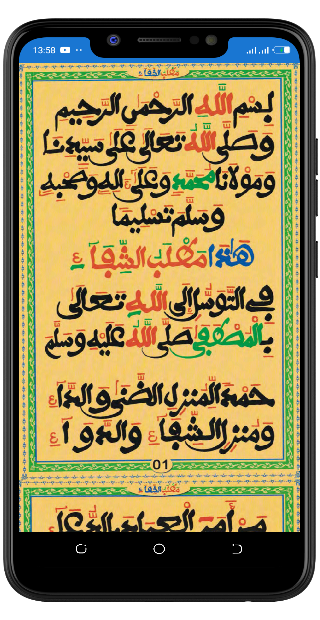 13:58
مطلب الشفاء
بسم الله الرحمن الرحيم
وصلى الله تعالى على سيدنا
ومولانا محمد وعلى اله وصحبه
وسلم تسليما
هذا مطلب الشفاء
في التوسل إلى الله تعالى
بالمصطفى صلى الله عليه وسلم
حمدا لمنزل الضنى والداء
ومنزل الشفاء والدواء
01
مطلب الشفاء